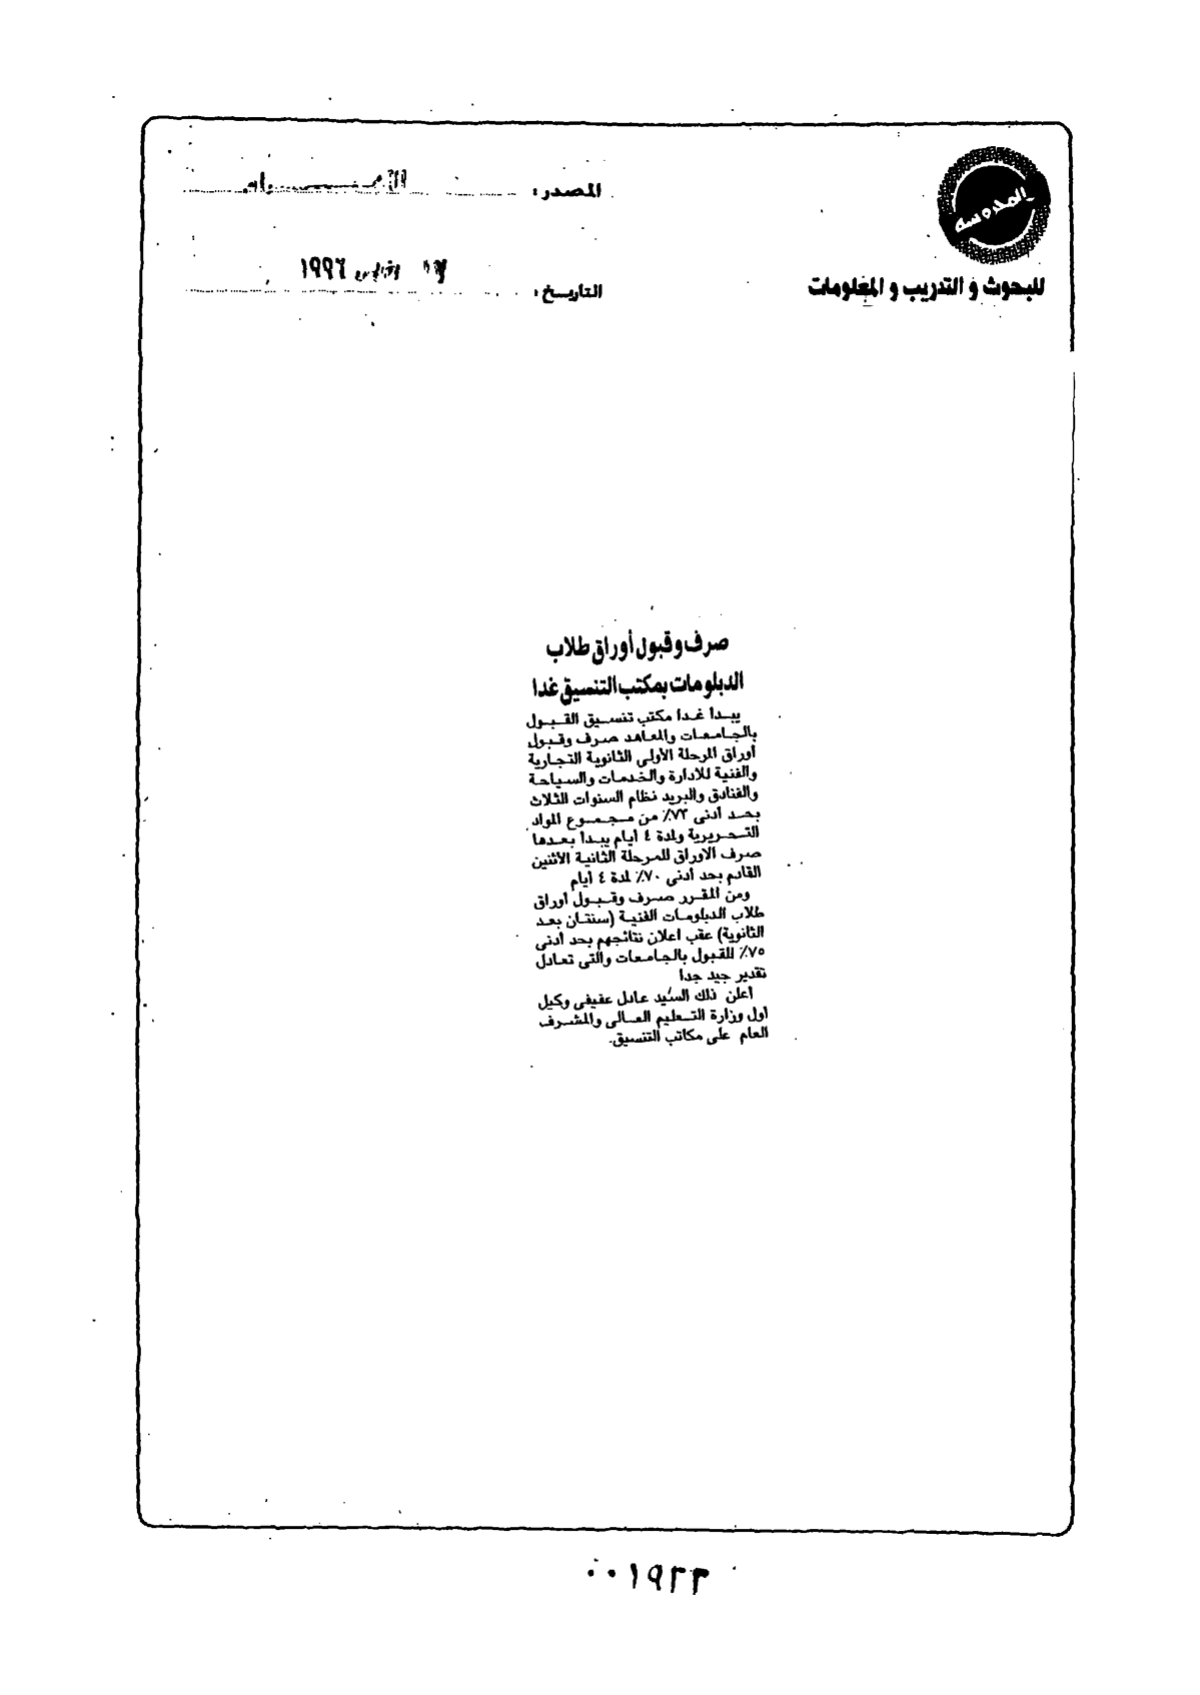 المحروسة
للبحوث و التدريب و المعلومات
المصدر :
التاريخ :
١٩٩٦
صرف وقبول أوراق طلاب
الدبلومات بمكتب التنسيق غدا
يبدا غدا مكتب تنسيق القبول
بالجامعات والمعاهد صرف وقبول
أوراق المرحلة الأولى الثانوية التجارية
والفنية للادارة والخدمات والسياحة
والفنادق والبريد نظام السنوات الثلاث
بحد أدنى ٧٣٪ من مجموع المواد
التحريرية ولمدة ٤ ايام يبدا بعدها
صرف الاوراق للمرحلة الثانية الأثنين
القادم بحد أدنى ٧٠٪ لمدة ٤ أيام
ومن المقرر صرف وقبول أوراق
طلاب الدبلومات الفنية (سنتان بعد
الثانوية) عقب اعلان نتائجهم بحد أدنى
٧٥٪ للقبول بالجامعات والتى تعادل
تقدير جيد جدا
أعلن ذلك السيد عادل عفيفى وكيل
أول وزارة التعليم العالى والمشرف
العام على مكاتب التنسيق.
٠٠١٩٢٣